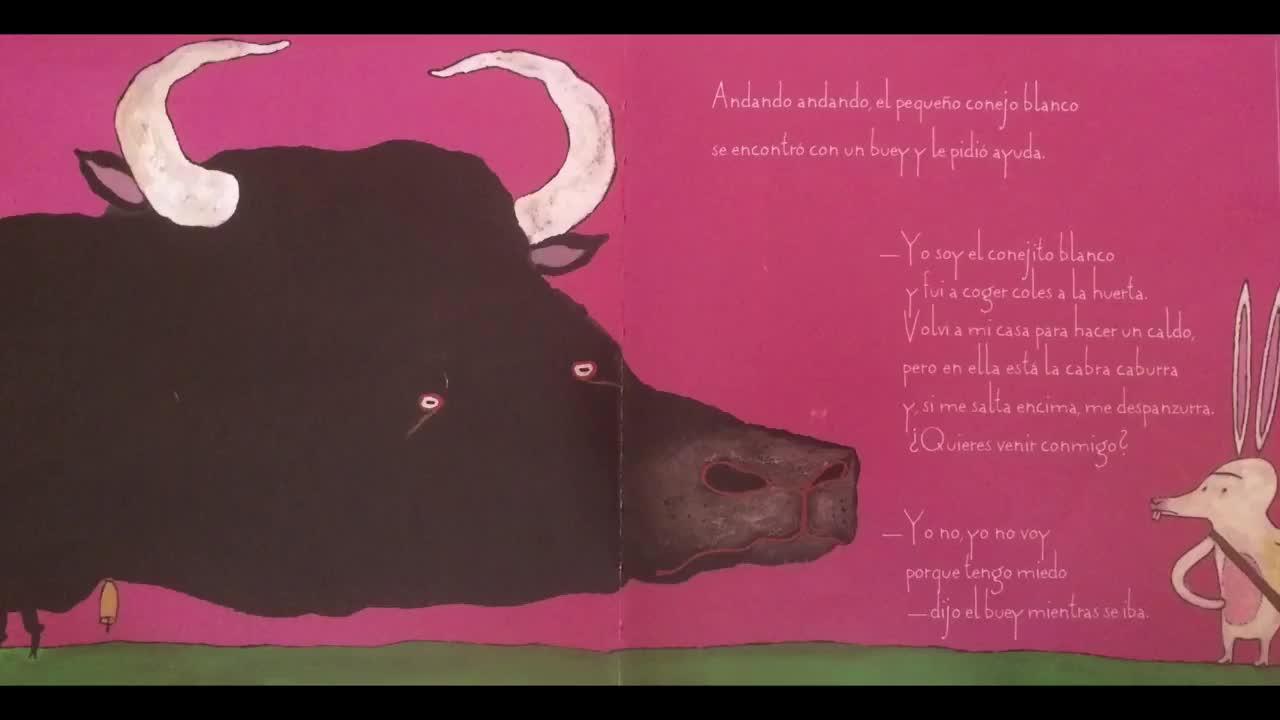 Andando andando, el pequeño conejo blanco
se encontró con un buey y le pidió ayuda.
—Yo soy el conejito blanco
y fui a coger coles a la huerta.
Volví a mi casa para hacer un caldo,
pero en ella está la cabra caburra
y, si me salta encima, me despanzurra.
¿Quieres venir conmigo?
—Yo no, yo no voy
porque tengo miedo
—dijo el buey mientras se iba.